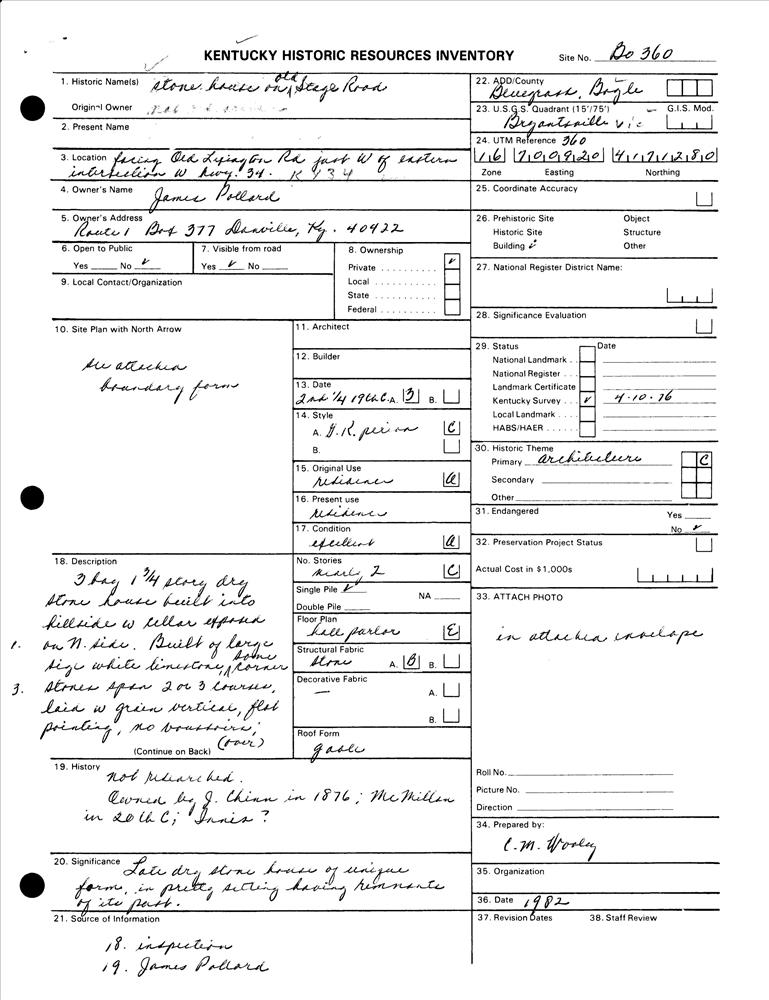 KENTUCKY HISTORIC RESOURCES INVENTORY
Site No. Bo 360
1. Historic Name(s) stone house on old Stage Road
Original Owner
2. Present Name
3. Location facing Old Lexington Rd just W of eastern
intersection w Hwy. 34. KY 34
4. Owner's Name
James Pollard
5. Owner's Address
Route 1 Box 377 Danville, Ky. 40422
6. Open to Public
Yes No ✓
7. Visible from road
Yes ✓ No
8. Ownership
Private ✓
Local
State
Federal
9. Local Contact/Organization
10. Site Plan with North Arrow
see attached
boundary form
11. Architect
12. Builder
13. Date
2nd 1/4 19th C. A. 3 B.
14. Style
A. G.K. period C
B.
15. Original Use
residence a
16. Present use
residence
17. Condition
excellent a
No. Stories
nearly 2 C
Single Pile ✓ NA
Double Pile
Floor Plan
hall parlor E
Structural Fabric
stone A. B B.
Decorative Fabric
— A.
B.
Roof Form
gable
18. Description
3 bay 1 3/4 story dry
stone house built into
hillside w cellar exposed
1. on N. side. Built of large
size white limestone, some corner
3. stones span 2 or 3 courses,
laid w grain vertical, flat
pointing, no voussoirs;
(Continue on Back) (over)
19. History
not researched.
Owned by J. Chinn in 1876; McMillan
in 20th C; Innis?
20. Significance Late dry stone house of unique
form, in pretty setting having remnants
of its past.
21. Source of Information
18. inspection
19. James Pollard
22. ADD/County
Bluegrass, Boyle
23. U.S.G.S. Quadrant (15'/75') G.I.S. Mod.
Bryantsville
24. UTM Reference 360
16 700920 4171280
Zone Easting Northing
25. Coordinate Accuracy
26. Prehistoric Site Object
Historic Site Structure
Building ✓ Other
27. National Register District Name:
28. Significance Evaluation
29. Status Date
National Landmark
National Register
Landmark Certificate
Kentucky Survey ✓ 4-10-76
Local Landmark
HABS/HAER
30. Historic Theme
Primary architecture C
Secondary
Other
31. Endangered Yes
No ✓
32. Preservation Project Status
Actual Cost in $1,000s
33. ATTACH PHOTO
in attached envelope
Roll No.
Picture No.
Direction
34. Prepared by:
C.M. Wooley
35. Organization
36. Date 1982
37. Revision Dates 38. Staff Review